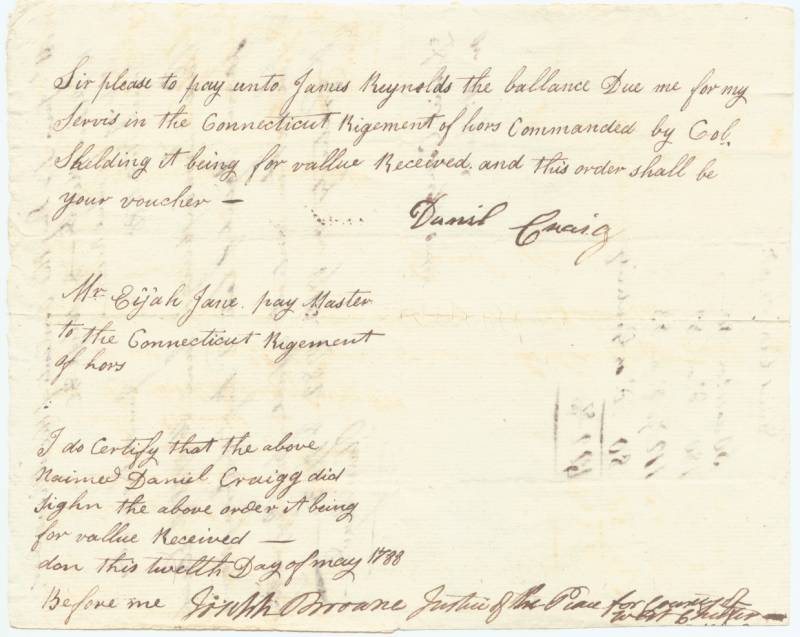 Sir please to pay unto James Reynolds the ballance Due me for my
Servis in the Connecticut Rigement of hors Commanded by Col.
Shelding it being for vallue Received and this order shall be
your voucher —
Danil Craig
Mr. Eijah Jane pay Master
to the Connecticut Rigement
of hors
I do Certify that the above
Naimed Daniel Craigg did
Sighn the above order it being
for vallue Received —
don this twelth Day of may 1788
Before me Joseph Browne Justice of the Peace for County of
West Chester